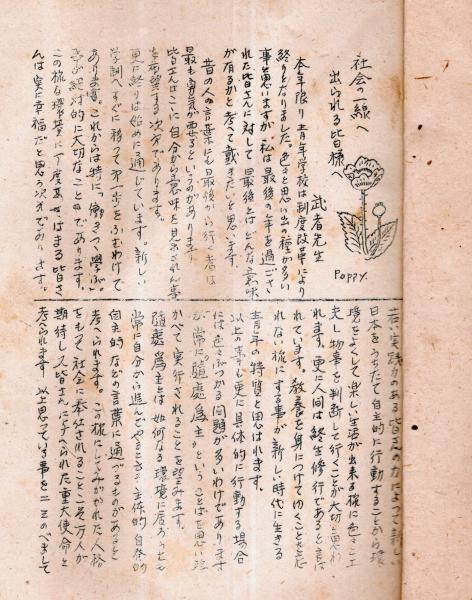 社会の一線へ
出られる皆様へ
武者先生
POPPY.
本年限り青年学校は制度改革により
終りとなりました。色々と思い出の種が多い
事と思いますが、私は最後の年を過ごさ
れた皆さんに対して最後とはどんな意味
が有るかと考へて戴きたいと思います。
昔の人の言葉にも最後から行く者は
最も勇気が要るというのがあります
皆さんはこに自分から意味を見出される事
を希望する次第であります。
更に終りは始めに通じています。新しい
学制へすぐに移って第一歩をふむわけで
あります。これからは特に、働きつゝ学ぶい
絶対的に大切なことゝであります。
この様な環境に丁度あてはまる皆さ
んは実に幸福だと思う次第であります。
若い実践力のある皆さんの力によって新しい
日本をうちたて自主的に行動することから環
境をよくして楽しい生活が出来る様に色々工
夫し物事を判断して行くことが大切と思わ
れます。更に人間は終生修行であると言は
れています。教養を身につけてゆくことを忘
れない様にする事が新しい時代に生きる
青年の特質と思はれます。
以上の事も更に具体的に行動する場合
には色々ぶつかる問題が多いわけであります
が、常に「随処為主」ということばを思い浮
かべて実行されることを望みます。
随處為主とは如何なる環境に居ろうとも
常に自分から進んでやるとき、主体的自体的
自主的などの言葉に通づるものがあると
考へられます。この様にしてみがかれた人格
をもって社会に奉仕されることこそ万人が
期待し又皆さんに与へられた重大使命と
考へられます。以上思っている事を一二のべまして